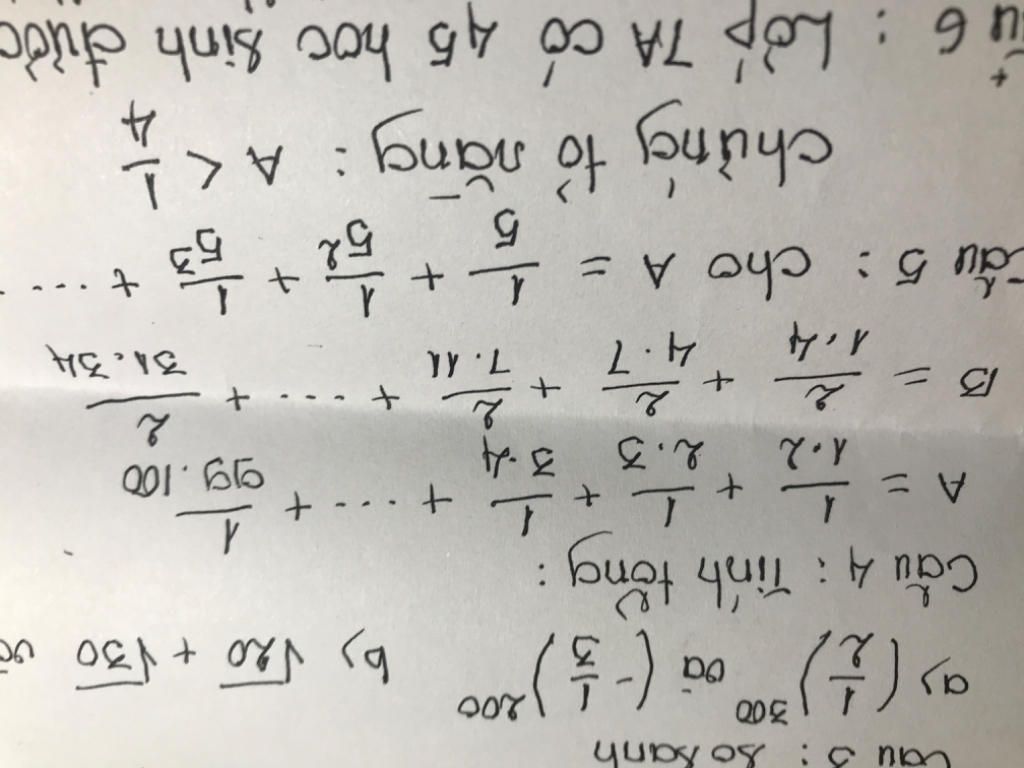 Câu 3 : So sánh
a, (1/2)^300 và (-1/3)^200 b, √20 + √30 và
Câu 4 : Tính tổng :
A = 1/1.2 + 1/2.3 + 1/3.4 + .... + 1/99.100
B = 2/1.4 + 2/4.7 + 2/7.11 + .... + 2/31.34
Câu 5 : Cho A = 1/5 + 1/5^2 + 1/5^3 + ....
Chứng tỏ rằng : A < 1/4
âu 6 : Lớp 7A có 45 học sinh được